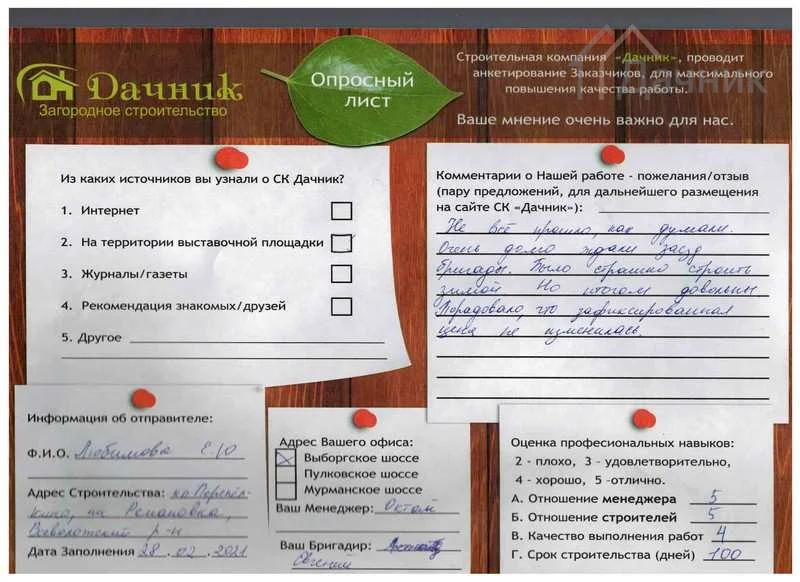 Дачник
Загородное строительство
Опросный
лист
Строительная компания «Дачник», проводит
анкетирование Заказчиков, для максимального
повышения качества работы.
Ваше мнение очень важно для нас.
дачник
Из каких источников вы узнали о СК Дачник?
1. Интернет
2. На территории выставочной площадки
3. Журналы/газеты
4. Рекомендация знакомых/друзей
5. Другое
Комментарии о Нашей работе - пожелания/отзыв
(пару предложений, для дальнейшего размещения
на сайте СК «Дачник»):
Не всё прошло, как думали.
Очень долго ждали заезд
бригады. Было страшно строить
зимой Но итогом довольны.
Порадовало, что зафиксированная
цена не изменилась.
Информация об отправителе:
Ф.И.О. Любимова Е.Ю
Адрес Строительства:
на Романовка,
Всеволожский р-н
Дата Заполнения 28.02.2021
Адрес Вашего офиса:
Выборгское шоссе
Пулковское шоссе
Мурманское шоссе
Ваш Менеджер:
Ваш Бригадир:
Евгений
Оценка професиональных навыков:
2 - плохо, 3 - удовлетворительно,
4 - хорошо, 5 -отлично.
А. Отношение менеджера 5
Б. Отношение строителей 5
В. Качество выполнения работ 4
Г. Срок строительства (дней) 100